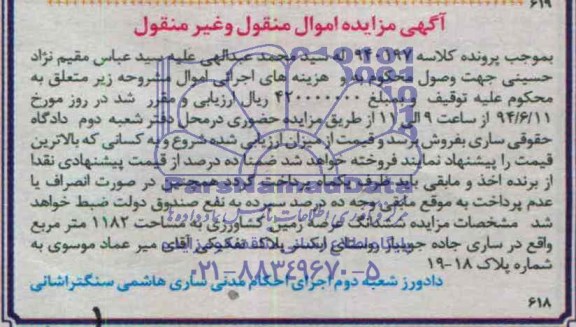 ۶۱۹
آگهی مزایده اموال منقول وغیر منقول
بموجب پرونده کلاسه ۹۴۰۱۹۷ له سید محمد عبدالهی علیه سید عباس مقیم نژاد
حسینی جهت وصول محکوم به و هزینه های اجرائی اموال مشروحه زیر متعلق به
محکوم علیه توقیف و بمبلغ ۴۲۰۰۰۰۰۰۰ ریال ارزیابی و مقرر شد در روز مورخ
۹۴/۶/۱۱ از ساعت ۹ الی ۱۱ از طریق مزایده حضوری درمحل دفتر شعبه دوم دادگاه
حقوقی ساری بفروش برسد و قیمت از میزان ارزیابی شده شروع و به کسانی که بالاترین
قیمت را پیشنهاد نمایند فروخته خواهد شد ضمنا ده درصد از قیمت پیشنهادی نقدا
از برنده اخذ و مابقی باید ظرف یکماه پرداخت گردد در صورت انصراف یا
عدم پرداخت به موقع مابقی وجه ده درصد سپرده به نفع صندوق دولت ضبط خواهد
شد مشخصات مزایده ششدانگ عرصه زمین کشاورزی به مساحت ۱۱۸۲ متر مربع
واقع در ساری جاده جویبار روستای ایکسر پلاک تفکیکی آقای میر عماد موسوی به
شماره پلاک ۱۸-۱۹
دادورز شعبه دوم اجرای احکام مدنی ساری هاشمی سنگتراشانی
۶۱۸
ParsNamadData
۰۲۱-۸۸۳۴۹۶۷۰-۵